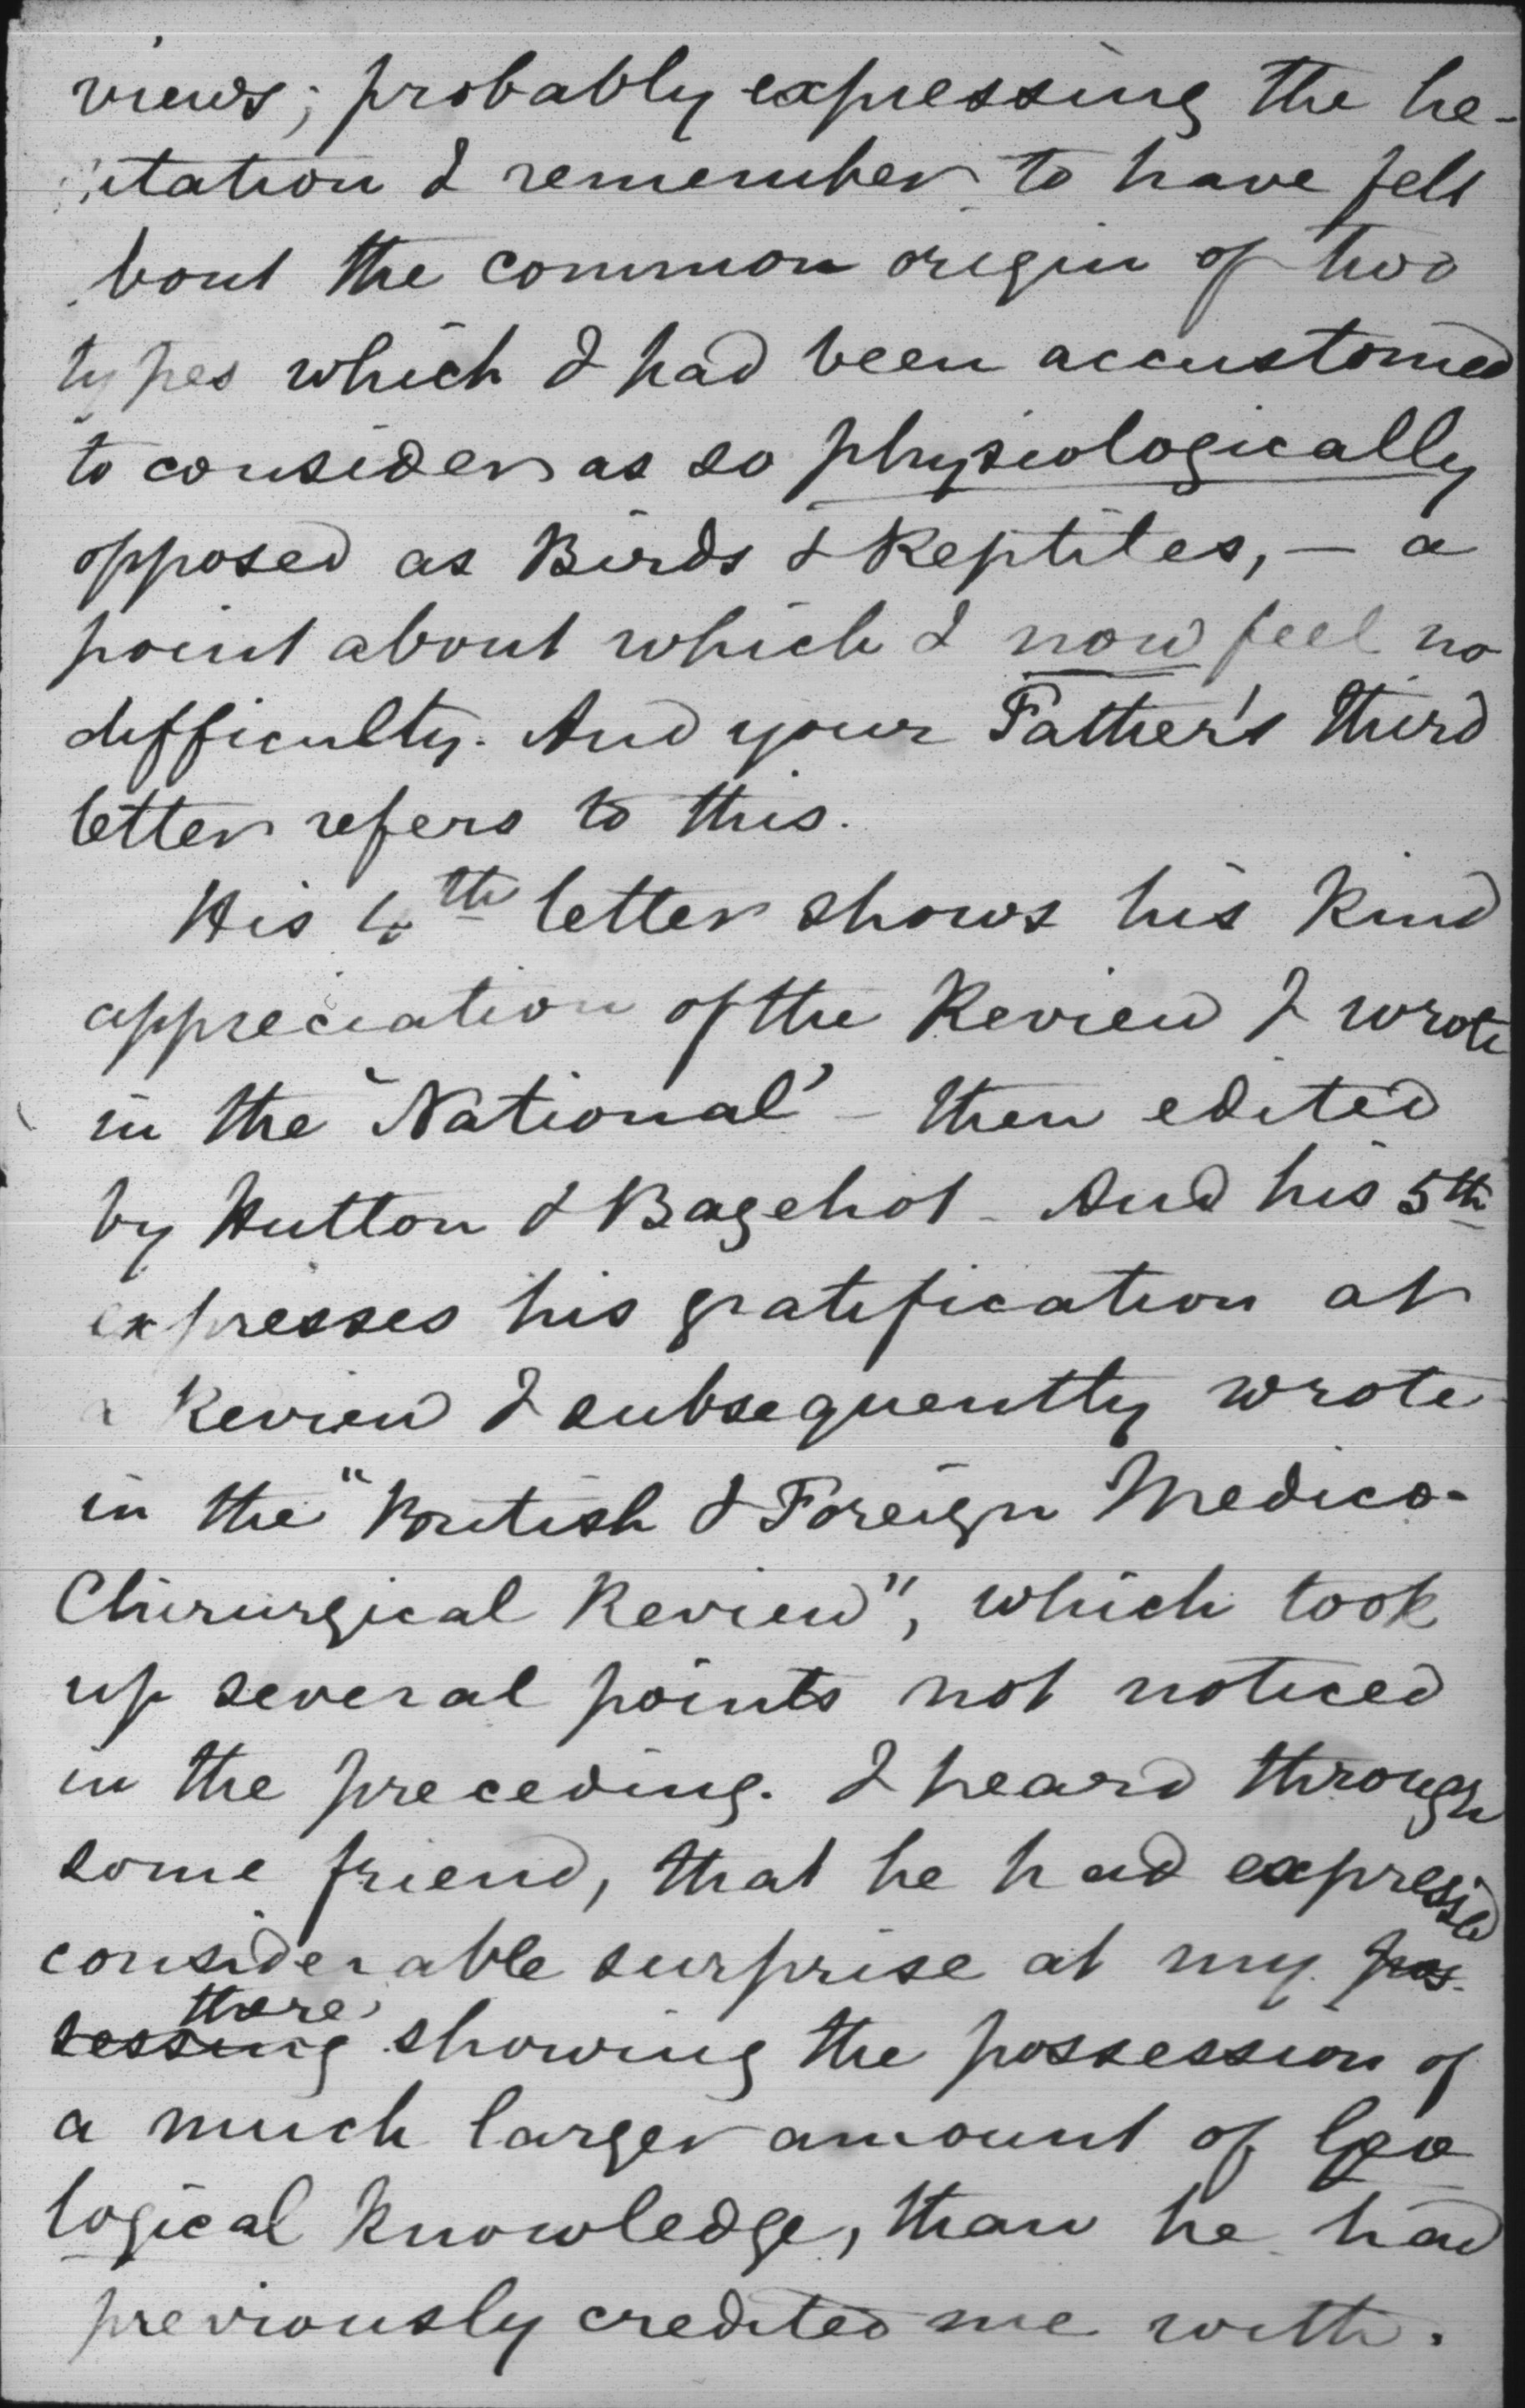 views; probably expressing the he-
itation I remember to have felt
bout the common origin of two
types which I had been accustomed
to consider as so physiologically
opposed as Birds & Reptiles, — a
point about which I now feel no
difficulty. And your Father's third
letter refers to this.
His 4th letter shows his kind
appreciation of the Review I wrote
in the 'National' — then edited
by Hutton & Bagehot — And his 5th
expresses his gratification at
a Review I subsequently wrote
in the "British & Foreign Medico-
Chirurgical Review", which took
up several points not noticed
in the preceding. I heard through
some friend, that he had expressed
considerable surprise at my pos-
there
sessing showing the possession of
a much larger amount of Geo
logical knowledge, than he had
previously credited me with.